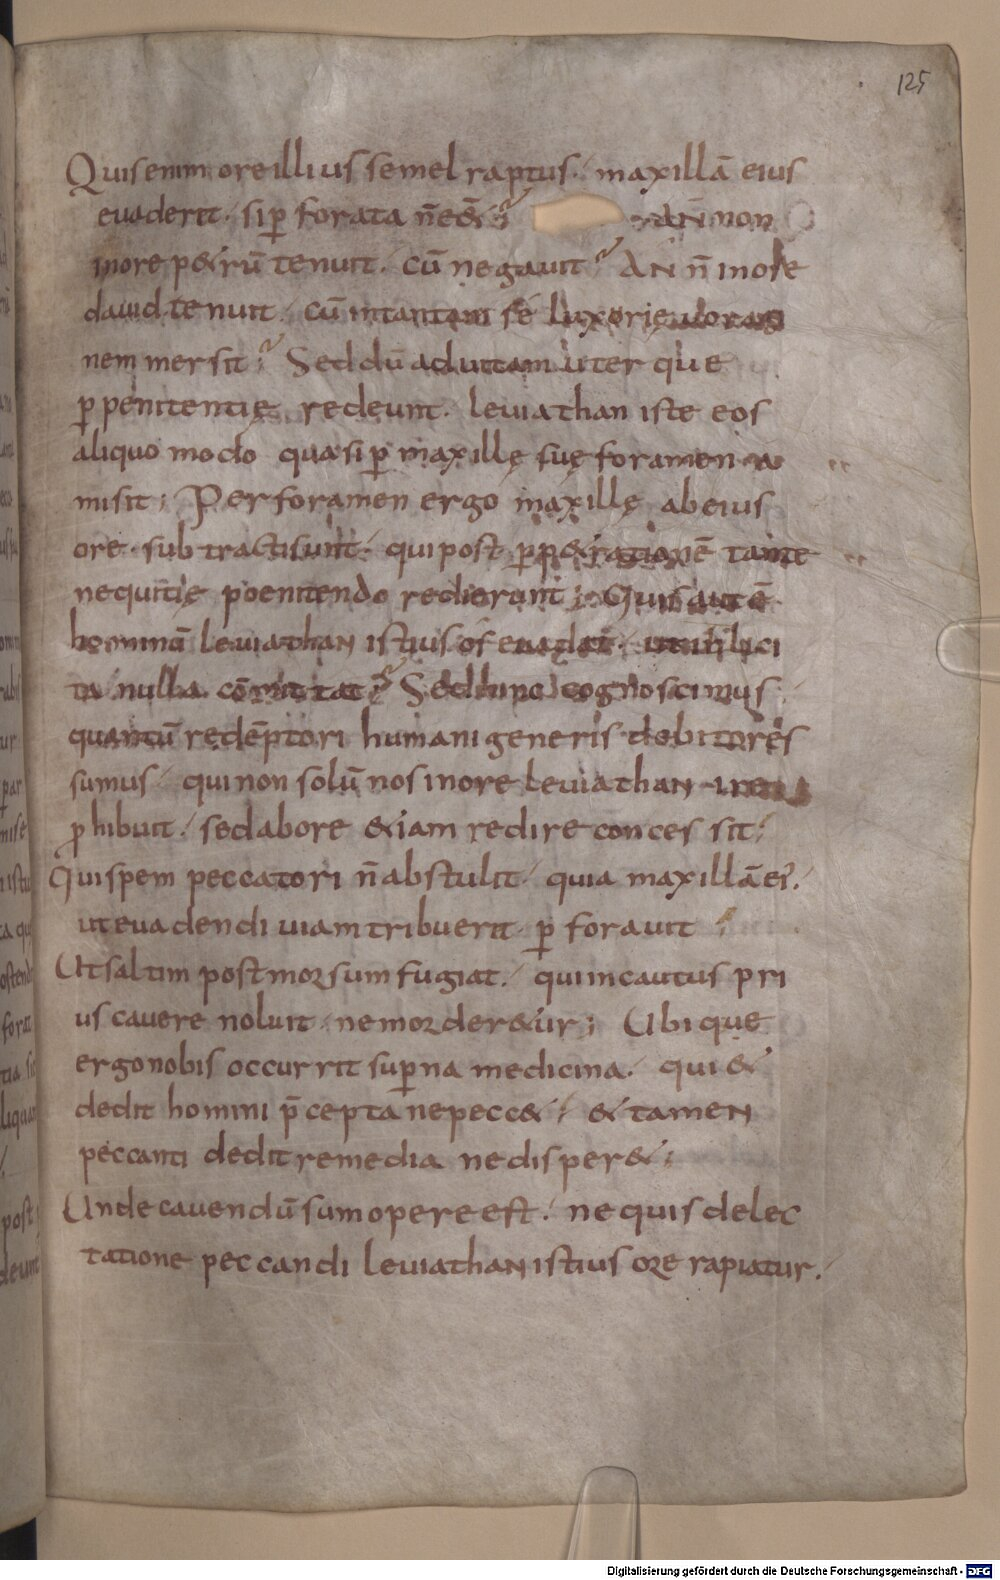 125
Quisenim oreillius semel raptus· maxillā eius
euaderet· sip̱ forata n̄ e&̄; non
inore p&rū tenuit· cū negauit? AN n̄ inore
dauid tenuit· cū intantam se luxurię uorag
nem mersit? Sed dū aduitam uterque
p̱ penitentię redeunt· leuiathan iste eos
aliquo modo quasi p̱ maxillę suę foramen a
misit; Per foramen ergo maxillę ab eius
ore subtracti sunt· qui post p̱p&rationē tante
nequitię poenitendo redierunt; Quis autē
hominū leuiathan istius os euadat· ut illici
ta nulla cōmittat? Sed hinc cognoscimus
quantū redēptori humani generis debitores
sumus· qui non solū nos inore leuiathan ire
p̱hibuit· sed abore &iam redire conces sit;
Qui spem peccatori n̄ abstulit· quia maxillā ei·
ut euadendi uiam tribueret p̱ forauit;
Ut saltim post morsum fugiat· qui incautus pri
us cauere noluit nemorder&ur; Ubique
ergo nobis occurrit sup̱na medicina· qui &
dedit homini p̄cepta nepecc&· & tamen
peccanti dedit remedia ne disper&;
Unde cauendū summopere est· ne quis delec
tatione peccandi leuiathan istius ore rapiatur·
Digitalisierung gefördert durch die Deutsche Forschungsgemeinschaft - DFG